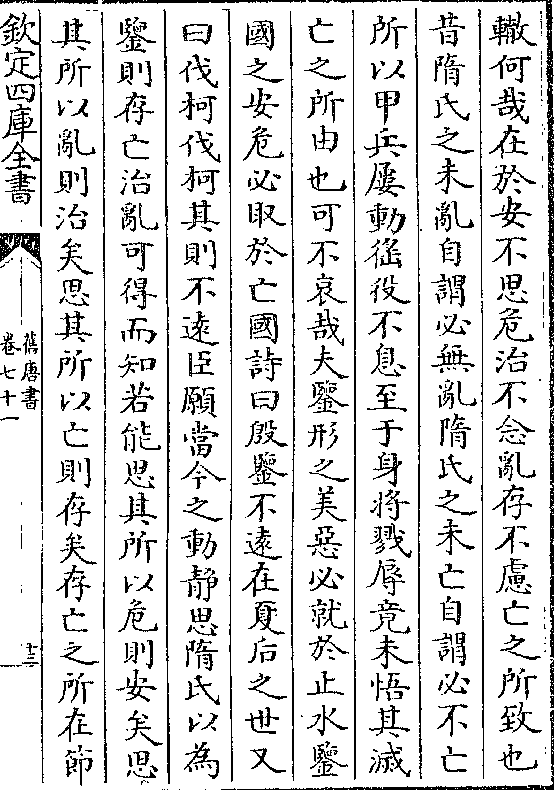 轍何哉在於安不思危治不念亂存不慮亡之所致也
昔隋氏之未亂自謂必無亂隋氏之未亡自謂必不亡
所以甲兵屢動徭役不息至于身將戮辱竟未悟其滅
亡之所由也可不哀哉夫鑒形之美惡必就於止水鑒
國之安危必取於亡國詩曰殷鑒不遠在夏后之世又
曰伐柯伐柯其則不遠臣願當今之動靜思隋氏以為
鑒則存亡治亂可得而知若能思其所以危則安矣思
其所以亂則治矣思其所以亡則存矣存亡之所在節
欽定四庫全書
舊唐書
卷七十一
十三